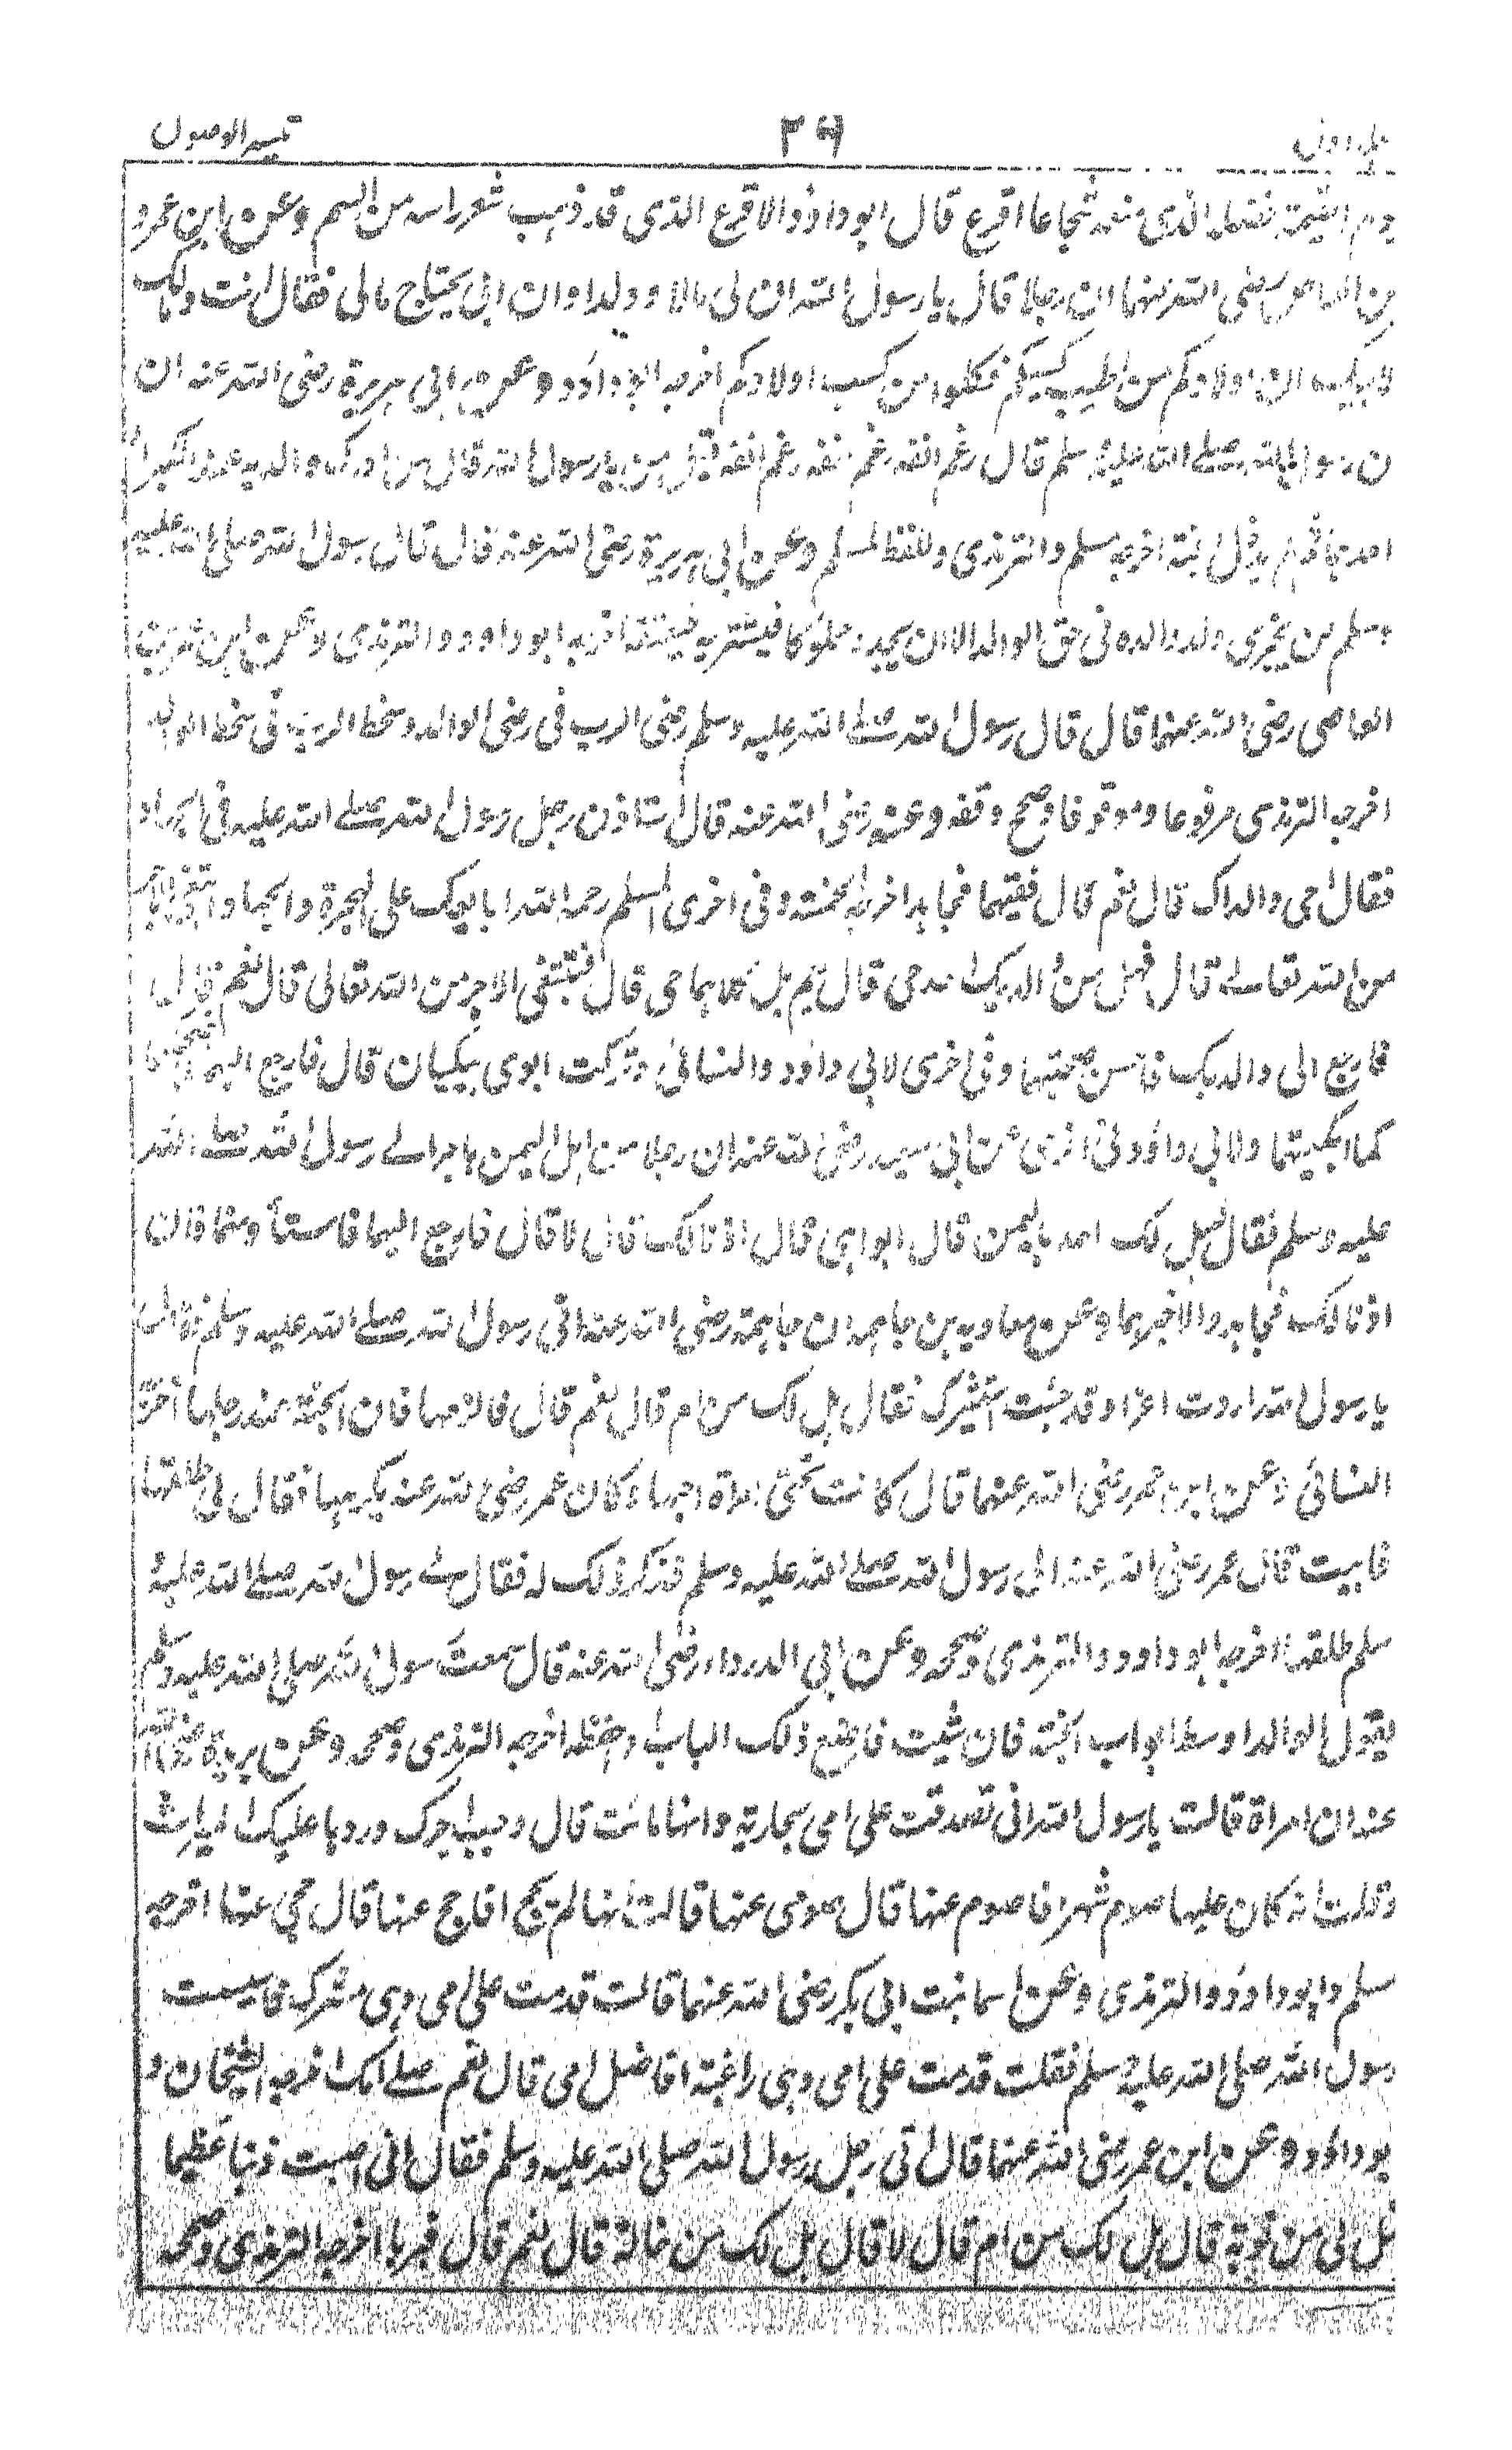 تيسير الوصول
٣٦
جلد اول
يوم القيمة فضله الذى منعه شجاعا اقرع قال ابو داؤد والاقرع الذى قد ذهب شعر راسه من السم وعن ابن عمرو
بن العاص رضى الله عنهما ان رجلا قال يا رسول الله ان لى مالا وولدا وان ابى يحتاج مالى فقال انت ومالك
لابيك ان اولادكم من اطيب كسبكم فكلوا من كسب اولادكم اخرجه ابو داؤد وعن ابى هريرة رضى الله عنه ان
ن رسول الله صلے الله عليه وسلم قال رغم انفه رغم انفه رغم انفه قيل من يا رسول الله قال من ادرك والديه عند الكبر او
احدهما ثم لم يدخل الجنة اخرجه مسلم والترمذى واللفظ لمسلم وعن ابى هريرة رضى الله عنه قال قال رسول الله صلى الله عليه
وسلم لن يجزى ولد والده فى حق الوالد الا ان يجده مملوكا فيشتريه فيعتقه اخرجه ابو داود والترمذى وعن ابن عمرو بن
العاصى رضى الله عنهما قال قال رسول الله صلے الله عليه وسلم رضى الرب فى رضى الوالد وسخط الرب فى سخط الوالد
اخرجه الترمذى مرفوعا وموقوفا وصحح وقفه وعنه رضى الله عنه قال استاذن رجل رسول الله صلے الله عليه فى الجهاد
فقال احى والداك قال نعم قال ففيهما فجاهد اخرجه الخمسة وفى اخرى لمسلم رحمه الله ابايعك على الهجرة والجهاد ابتغى الاجر
من الله تعالے قال فهل من والديك احد حى قال نعم بل كلاهما حى قال فتبتغى الاجر من الله تعالى قال نعم قال
فارجع الى والديك فاحسن صحبتهما وفى اخرى لابى داود والنسائى وتركت ابوى يبكيان قال فارجع اليهما فاضحكهما
كما ابكيتهما ولابى داؤد فى اخرى عن ابى سعيد رضى الله عنه ان رجلا من اهل اليمن هاجر الے رسول الله صلے الله
عليه وسلم فقال هل لك احد باليمن قال ابواى قال اذنا لك قال لا قال فارجع اليهما فاستأذنهما فان
اذنا لك فجاهد والا فبرهما وعن معاوية بن جاهمة ان جاهمة رضى الله عنه اتى رسول الله صلے الله عليه وسلم فقال
يا رسول الله اردت اغزو وقد جئت استشيرك فقال هل لك من ام قال نعم قال فالزمها فان الجنة عند رجلها اخرجه
النسائى وعن ابن عمر رضى الله عنهما قال كانت تحتى امراة احبها وكان عمر رضى الله عنه يكرهها فقال لى طلقها
فابيت فاتى عمر رضى الله عنه الى رسول الله صلے الله عليه وسلم فذكر ذلك له فقال لے رسول الله صلے الله عليه
سلم طلقها اخرجه ابو داود والترمذى وصححه وعن ابى الدرداء رضى الله عنه قال سمعت رسول الله صلى الله عليه وسلم
يقول الوالد اوسط ابواب الجنة فان شيت فاضع ذلك الباب او احفظه اخرجه الترمذى وصححه وعن بريدة رضى الله
عنه ان امراة قالت يا رسول الله انى تصدقت على امى بجارية وانها ماتت قال وجب اجرك وردها عليك الميراث
وقالت انه كان عليها صوم شهر افاصوم عنها قال صومى عنها قالت انها لم تحج افاحج عنها قال حجى عنها اخرجه
مسلم وابو داود والترمذى وعن اسما بنت ابى بكر رضى الله عنهما قالت قدمت على امى وهى مشركة فاستفتيت
رسول الله صلى الله عليه وسلم فقلت قدمت على امى وهى راغبة افاصل امى قال نعم صلے امك اخرجه الشيخان و
بو داؤد وعن ابن عمر رضى الله عنهما قال اتى رجل رسول الله صلى الله عليه وسلم فقال انى اصبت ذنبا عظيما
فهل لى من توبة قال هل لك من ام قال لا قال هل لك من خالة قال نعم قال فبرها اخرجه الترمذى وصححه